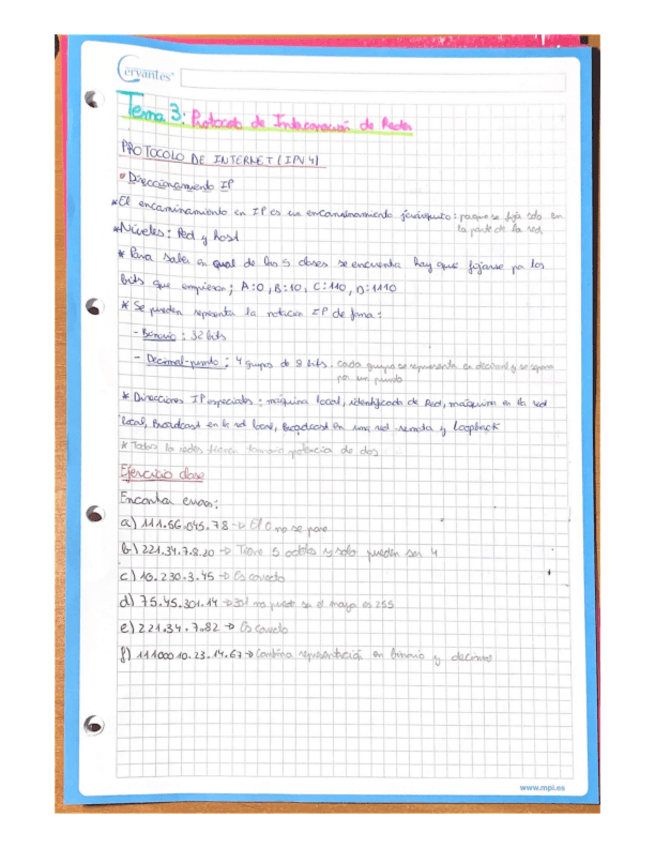 Cervantes
Tema 3: Protocolo de Interconexión de Redes
PROTOCOLO DE INTERNET (IPV4)
Direccionamiento IP
*El encaminamiento en IP es un encaminamiento jerárquico: porque se fija solo en
la parte de la red.
*Niveles: Red y host
* Para saber en qual de las 5 clases se encuentra hay que fijarse por los
bits que empiezan; A:0, B:10, C:110, D:1110
* Se pueden representar la notación IP de forma:
- Binario: 32 bits
- Decimal-punto: 4 grupos de 8 bits. cada grupo se representa en decimal y se separa
por un punto
* Direcciones IP especiales: máquina local, identificador de Red, máquina en la red
local, Broadcast en la red local, Broadcast en una red remota y loopback
* Todas la redes tienen tamaño potencia de dos
Ejercicio clase
Encontrar errores:
a) 111.56.045.78 → El 0 no se pone
b) 221.34.7.8.20 → Tiene 5 octetos y solo pueden ser 4
c) 10.230.3.45 → Es correcto
d) 75.45.301.14 → 301 no puede ser el mayor es 255
e) 221.34.7.82 → Es correcto
f) 11100010.23.14.67 → Combina representación en binario y decimal
www.mpi.es